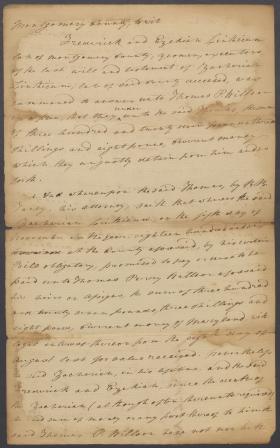 Montgomery County to wit
Frederick and Ezekiel Linthicum
late of Montgomery County, yeomen, executors
of the last will and testament of Zachariah
Linthicum, late of said county deceased, was
summoned to answer unto Thomas P. Willson
of a plea, that they render unto the said Thomas, the sum
of three hundred and ninety seven pounds three
shillings and eight pence, current money
which they unjustly detain from him and so
forth.
And whereupon the said Thomas, by
his attorney, saith that whereas the said
Zachariah Linthicum, on the fifth day of
in the year eighteen hundred and
at the County aforesaid, by his certain
bill obligatory, promised to pay or cause to be
paid unto Thomas Perry Willson aforesaid
his heirs or assigns the sum of three hundred
and ninety seven pounds, three shillings and
eight pence, current money of Maryland with
legal interest thereon from the eighth day of
August last for value received. Nevertheless
said Zachariah, in his lifetime, and the said
Frederick and Ezekiel, since the death of
the Zachariah (although often thereunto required)
said sum of money or any part thereof to him the
said Thomas P. Willson have not nor hath